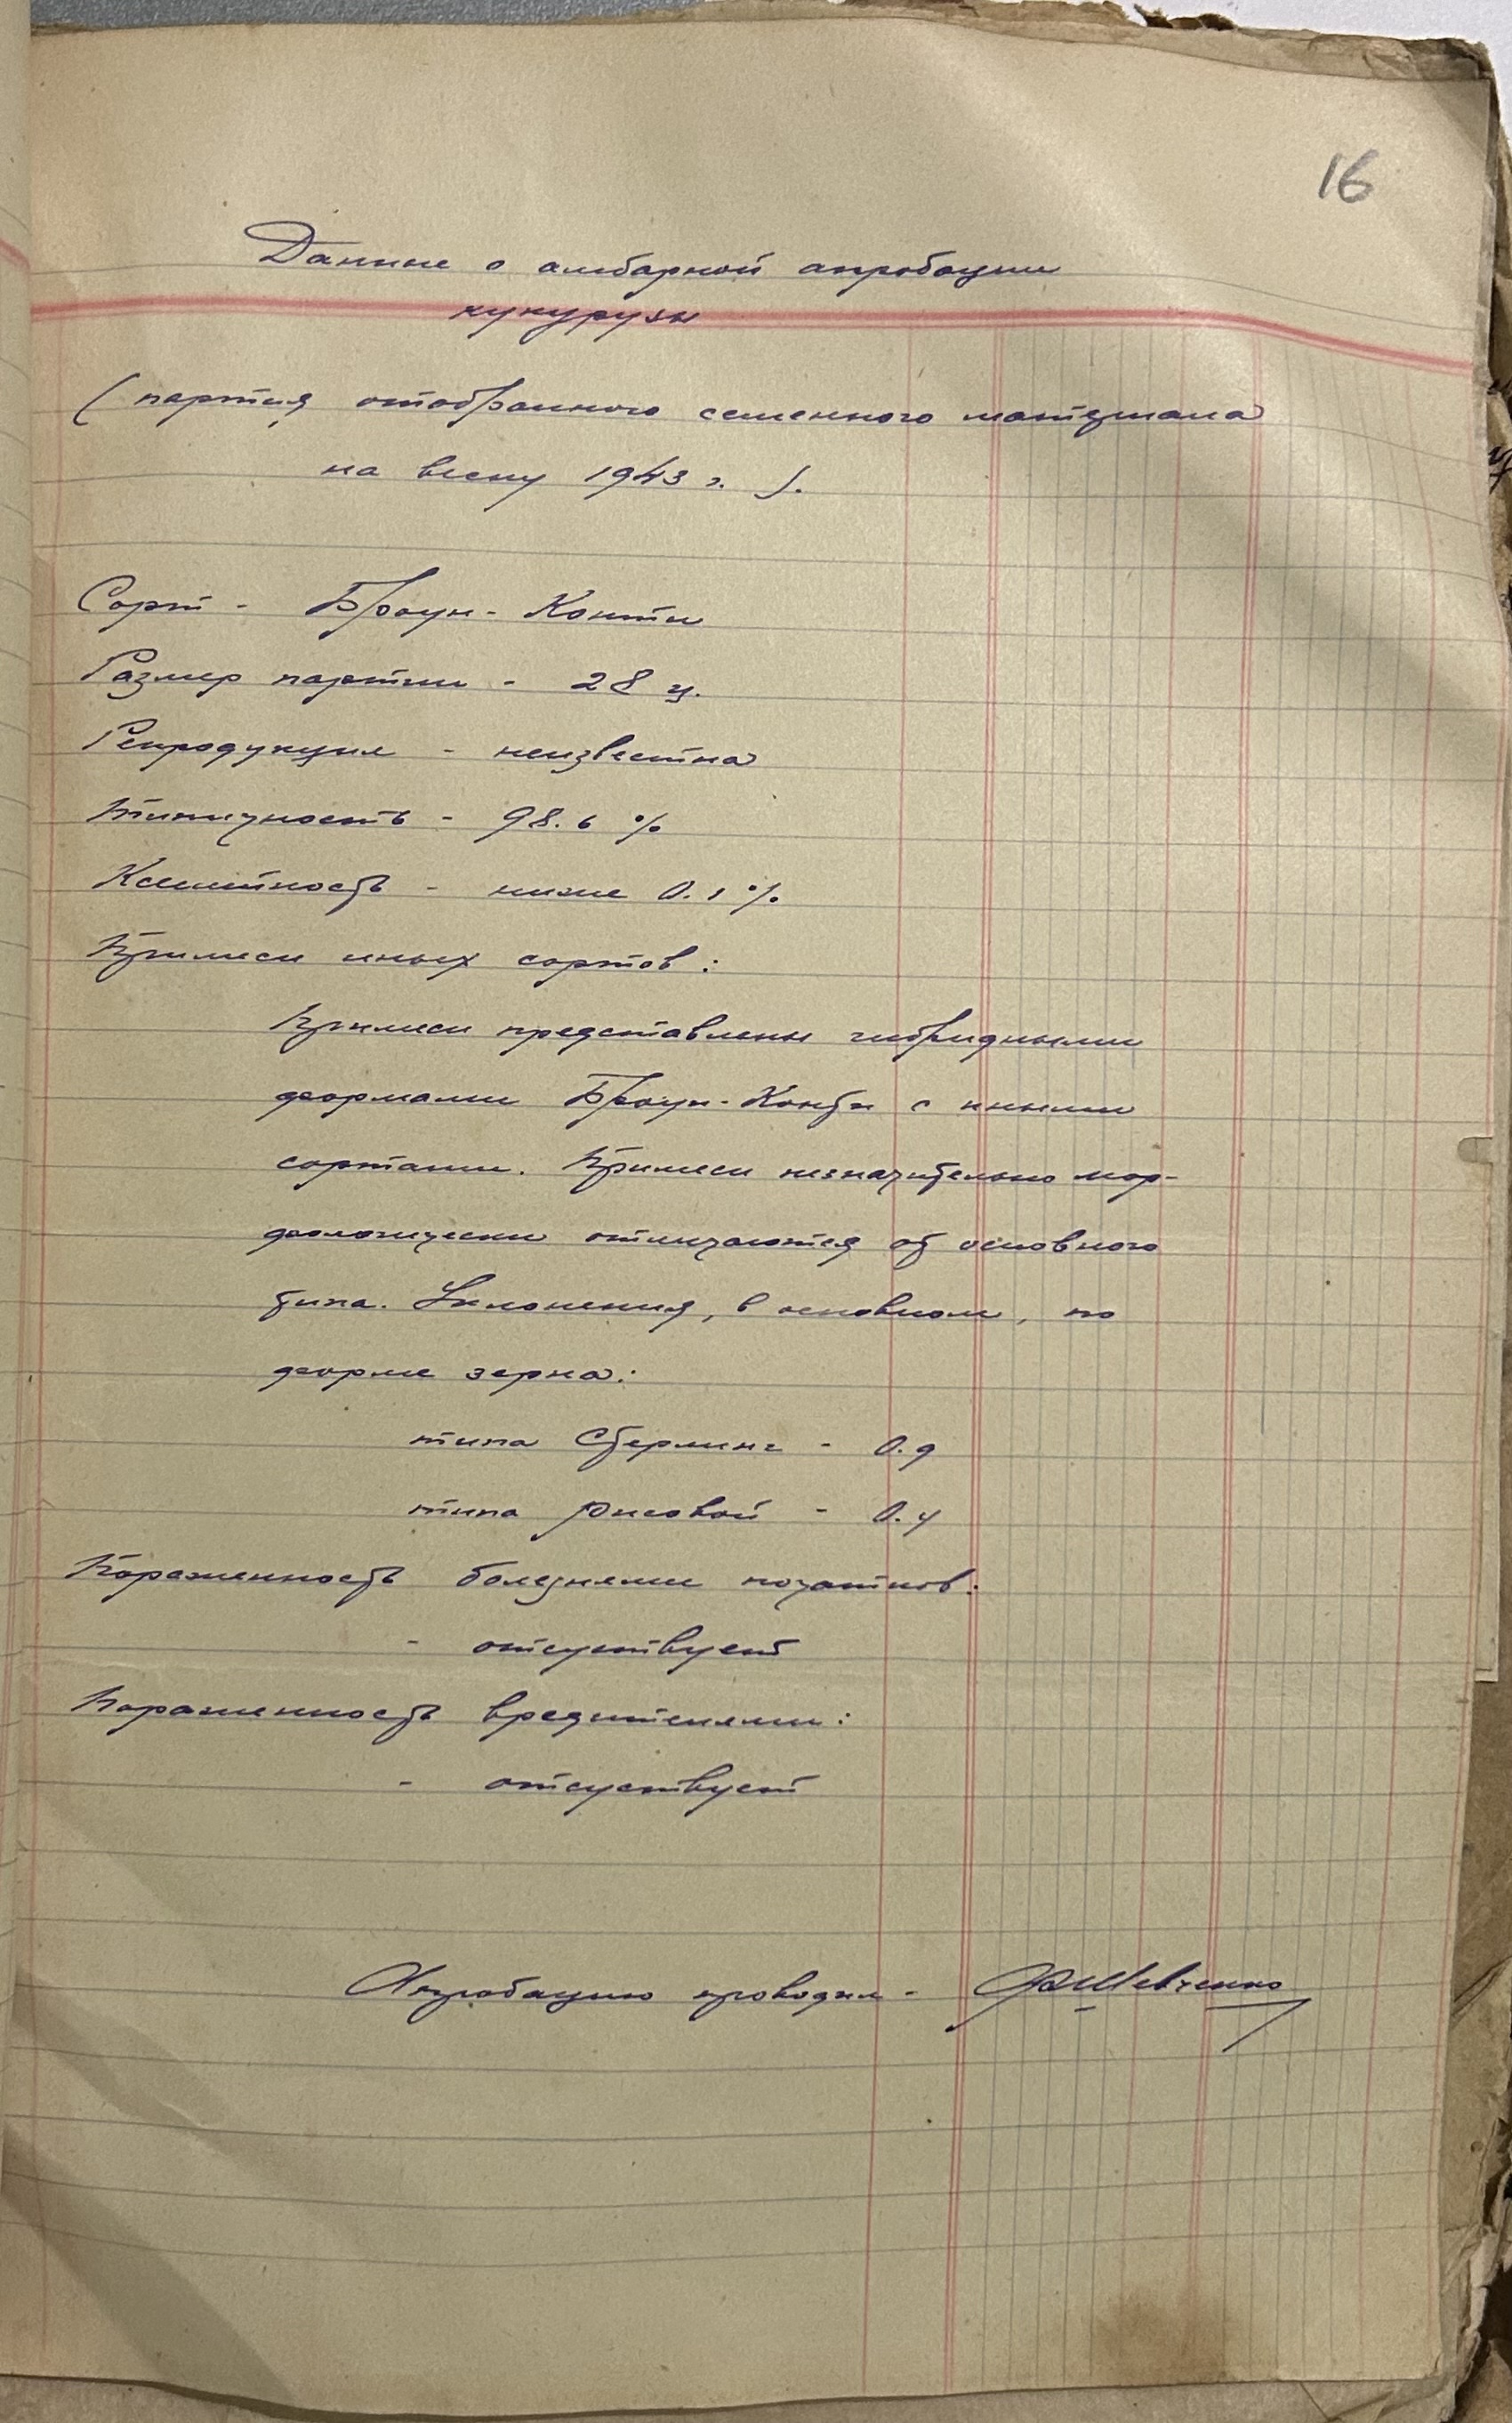 16
Данные о амбарной апробации
кукурузы
(партия отобранного семенного материала
на весну 1943 г. ).
Сорт - Броун-Конти
Размер партии - 28 ц.
Репродукция - неизвестна
Типичность - 98.6 %
Ксенийность - ниже 0.1 %
Примеси иных сортов:
Примеси представлены гибридными
формами Броун-Конти с иными
сортами. Примеси незначительно мор-
фологически отличаются от основного
типа. Уклонения, в основном, по
форме зерна:
типа Стерлинг - 0.9
типа рисовой - 0.4
Пораженность болезнями початков:
- отсутствует
Пораженность вредителями:
- отсутствует
Апробацию проводил - Шевченко